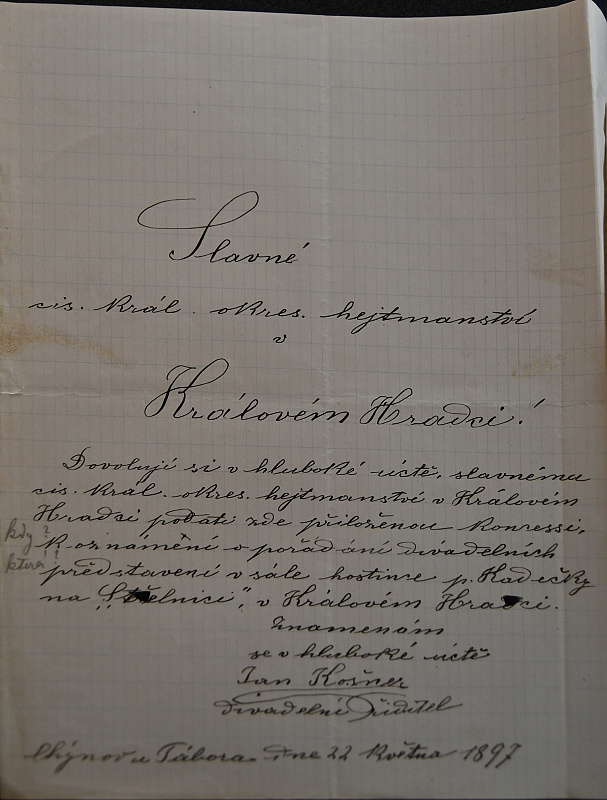 Slavné
cis. král. okres. hejtmanství
v
Královém Hradci!
Dovoluji si v hluboké úctě, slavnému
cis. král. okres. hejtmanství v Královém
Hradci podati zde přiloženou koncessi,
kdy?
k oznámění o pořádání divadelních
která?
představení v sále hostince p. Kadečky
na „Střelnici", v Královém Hradci.
Znamenám
se v hluboké úctě
Jan Košner
divadelní ředitel
Chýnov u Tábora dne 22 Května 1897